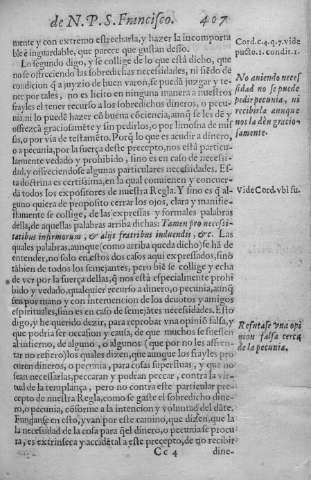 de N. P. S. Francisco. 407
mente y con extremo estrecharla, y hazer la incomporta
ble è inguardable, que parece que gustan desso.
Lo segundo digo, y se collige de lo que està dicho, que
no se ofreciendo las sobredichas necessidades, ni siēdo de
condicion q̃ a juyzio de buen varon, se pueda juzgar
por tales, no es licito en ninguna manera a nuestros
frayles el tener recurso a los sobredichos dineros, o pecu-
nia ni lo puedē hazer cō buena cōciencia, aunq̃ les dē y
ofrezcā graciosamēte y sin pedirlos, o por limosna de mis
sa, o por via de testamēto. Porq̃ lo que es acudir a dinero,
o a pecunia, por la fuerça deste precepto, nos està particu-
larmente vedado y prohibido, sino es en caso de necessi-
dad, y ofreciendose algunas particulares necessidades. Es-
ta doctrina es certissima, en la qual conuienen y concuerdā
todos los expositores de nuestra Regla. Y sino es q̃ al-
guno quiera de proposito cerrar los ojos, clara y mani-
festamente se collige, de las expressas y formales palabras
della, de aquellas palabras arriba dichas: Tamen pro necessi-
tatibus infirmorum, & alijs fratribus induendis, &c. Las
quales palabras, aunque (como arriba queda dicho) se hā de
entender, no solo en estos dos casos aqui expressados, sino
tābien de todos los semejantes, pero biē se collige y echa
de ver por la fuerça dellas, q̃ nos està especialmente prohi
bido y vedado, qualquier recurso a dinero, o pecunia, aunq̃
sea por mano y con interuencion de los deuotos y amigos
espirituales, sino es en caso de semejātes necessidades. Esto
digo, y he querido dezir, para reprobar vna opinió falsa, y
que podria ser occasion y causa, de que muchos se fuessen
al infierno, de alguno, o algunos (que por no les affren-
tar no refiero) los quales dizen, que aunque los frayles pro
curen dineros, o pecunia, para cosas superfluas, y que no
sean necessarias, peccaran y pueden peccar, contra la vir-
tud de la templança, pero no contra este particular pre-
cepto de nuestra Regla, como se gaste el sobredicho dine-
ro, o pecunia, cōforme a la intencion y voluntad del dāte.
Fundanse en esto, y van por este camino, que dizen, que la
la necessidad de la cosa para q̃ el dinero, o pecunia se procu
ra, es extrinseca y accidētal a este precepto, de no recibir
Cc 4 dine-
Cord. c. 4. q. 7. vide
pucto. 1. condit. 1.
No auiendo neces
sidad no se puede
pedir pecunia, ni
recibirla aunque
nos la dēn gracio-
samente.
Vide Cord. vbi su.
Refutase vna opi
nion falsa cerca
de la pecunia.